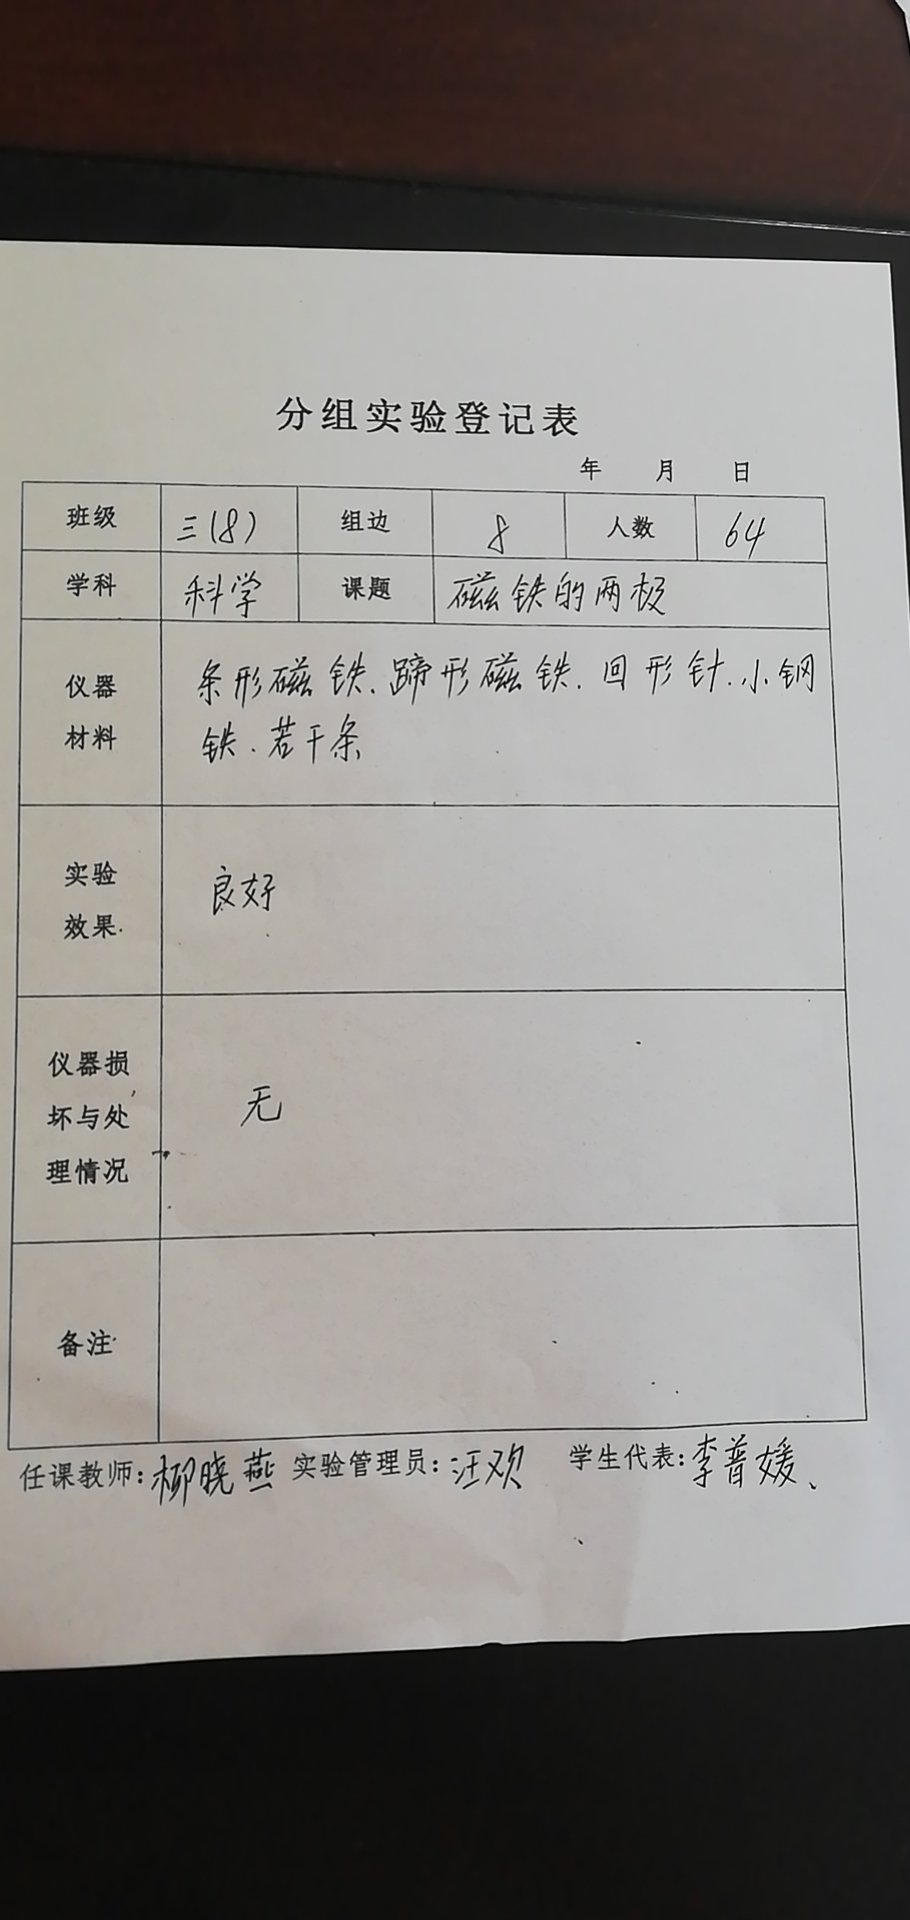 分组实验登记表
年 月 日
班级 三(8) 组边 8 人数 64
学科 科学 课题 磁铁的两极
仪器 条形磁铁、蹄形磁铁、回形针、小钢
材料 铁、若干条
实验
效果 良好
仪器损
坏与处 无
理情况
备注
任课教师:柳晓燕 实验管理员:汪欢 学生代表:李普媛、